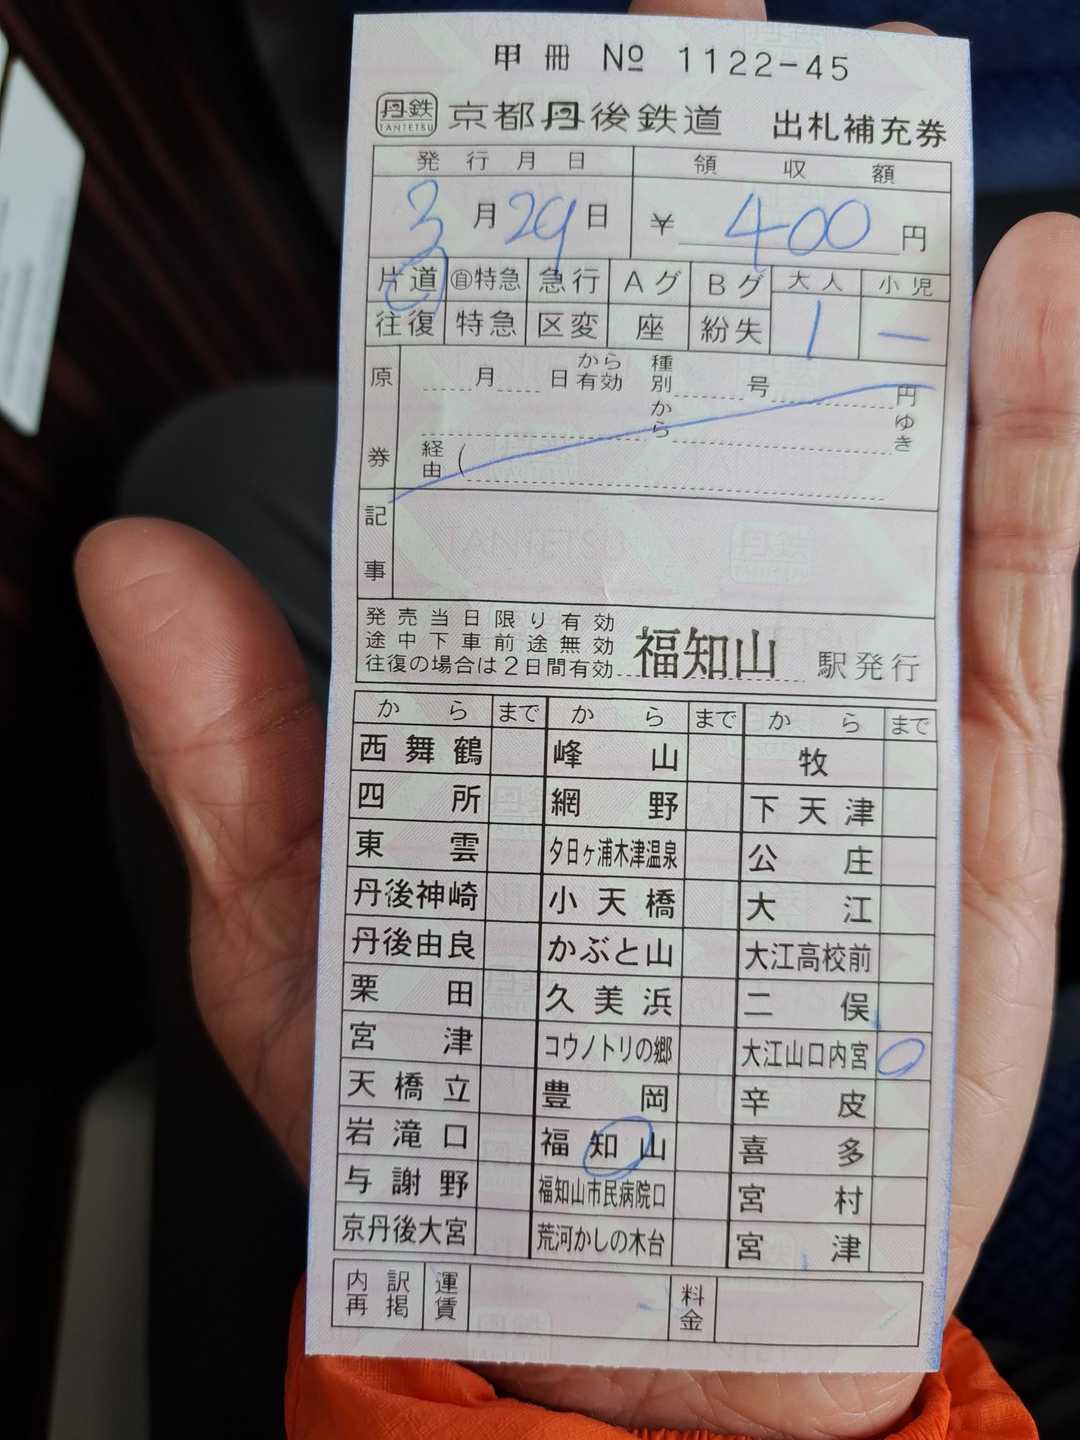 甲冊 № 1122-45
丹鉄 TANTETSU 京都丹後鉄道 出札補充券
発行月日 領収額
3月29日 ¥ 400 円
片道 自特急 急行 Aグ Bグ 大人 小児
往復 特急 区変 座 紛失 1 一
原券 月 日から有効 種別 号 円
から ゆき
経由 (
記事
発売当日限り有効
途中下車前途無効
往復の場合は2日間有効 福知山 駅発行
から まで から まで から まで
西舞鶴 峰山 牧
四所 網野 下天津
東雲 夕日ヶ浦木津温泉 公庄
丹後神崎 小天橋 大江
丹後由良 かぶと山 大江高校前
栗田 久美浜 二俣
宮津 コウノトリの郷 大江山口内宮 ○
天橋立 豊岡 辛皮
岩滝口 福知山 喜多
与謝野 福知山市民病院口 宮村
京丹後大宮 荒河かしの木台 宮津
内訳再掲 運賃 料金